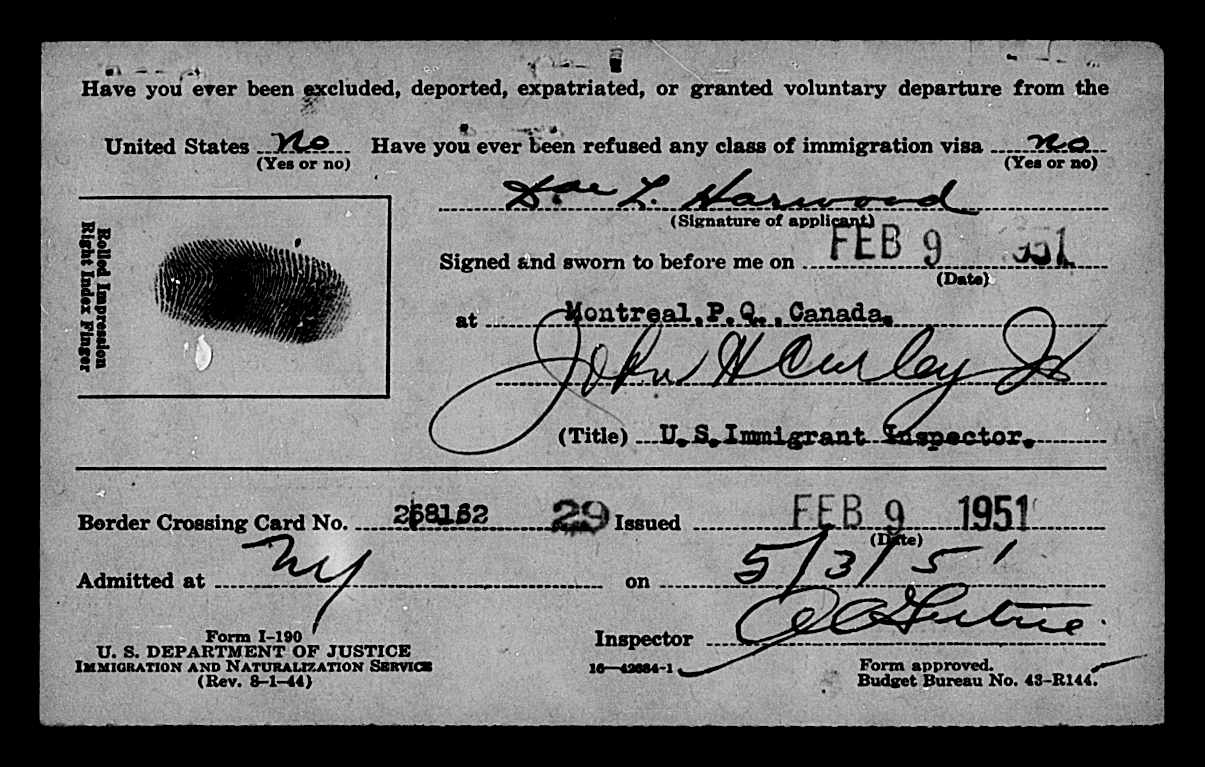 Have you ever been excluded, deported, expatriated, or granted voluntary departure from the
United States no Have you ever been refused any class of immigration visa no
(Yes or no) (Yes or no)
L. Harwood
(Signature of applicant)
Rolled Impression
Right Index Finger
Signed and sworn to before me on FEB 9 1951
(Date)
at Montreal, P.Q., Canada.
John H Curley Jr
(Title) U.S. Immigrant Inspector.
Border Crossing Card No. 268162 29 Issued FEB 9 1951
(Date)
Admitted at NY on 5/3/51
Inspector
Form I-190
U. S. DEPARTMENT OF JUSTICE
IMMIGRATION AND NATURALIZATION SERVICE
(Rev. 8-1-44)
16—42684-1
Form approved.
Budget Bureau No. 43-R144.